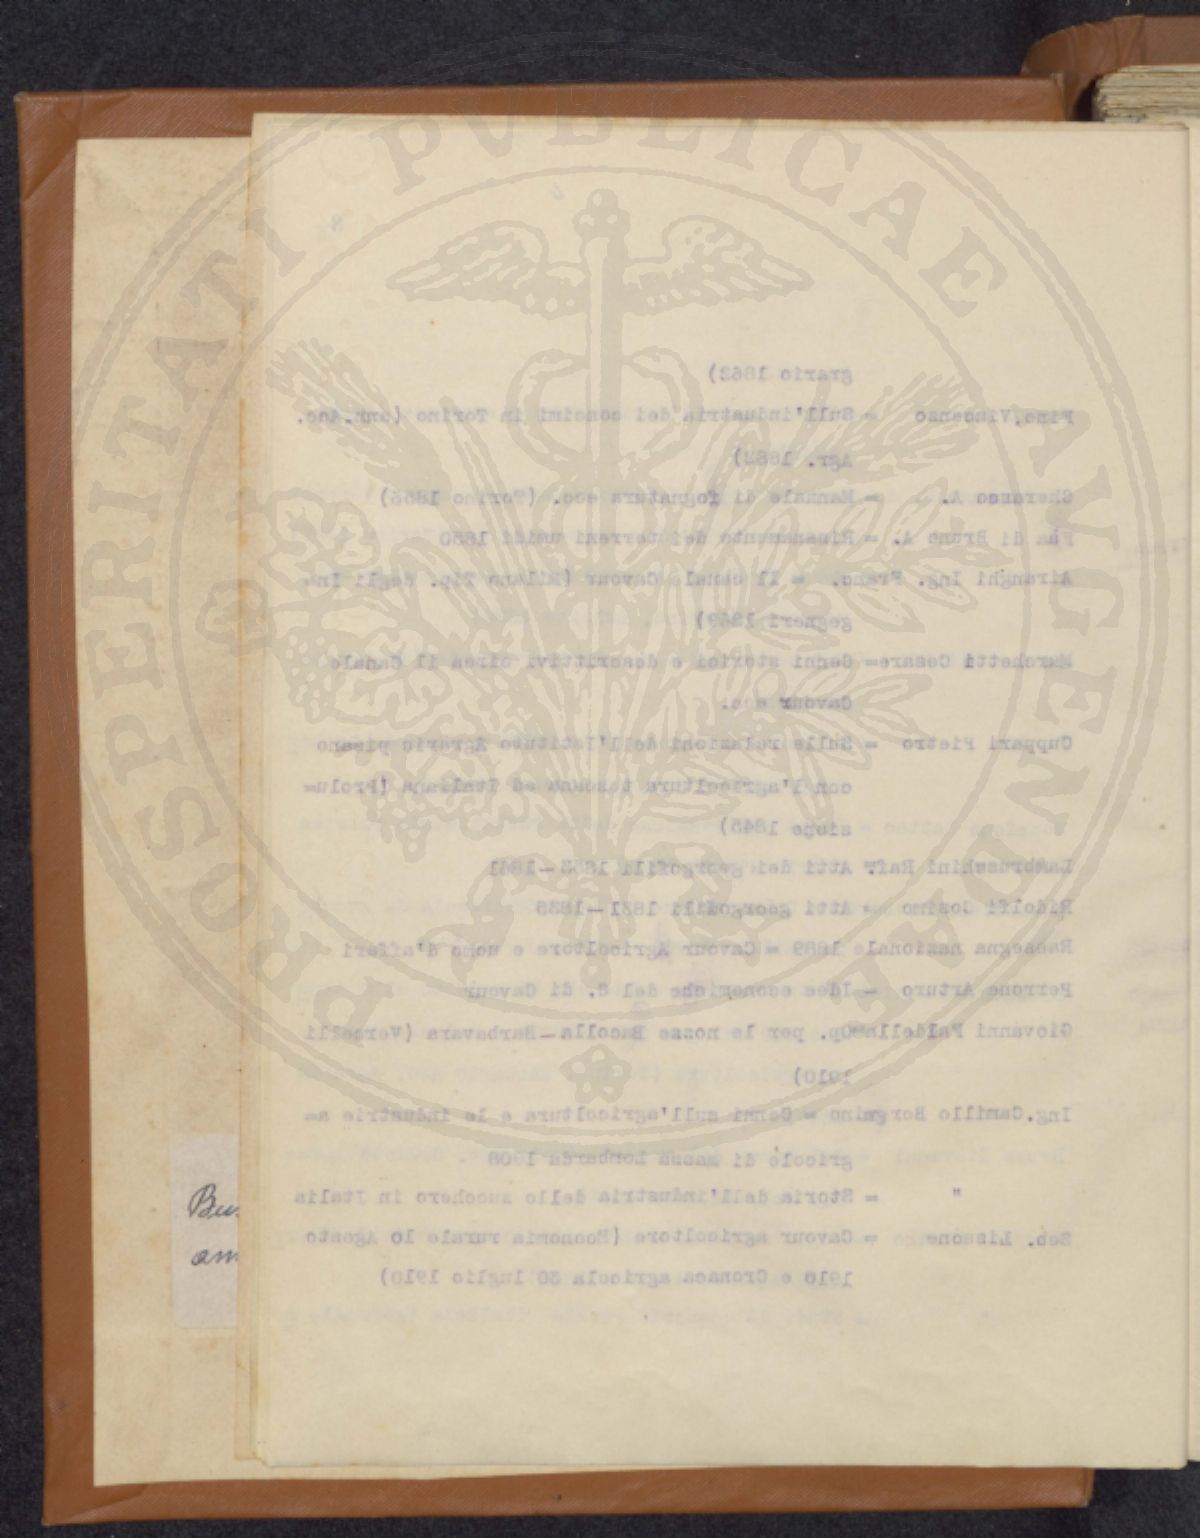 PROSPERITATI PUBLICAE AUGENDAE
grario 1862)
Pino, Vincenzo = Sull'industria dei concimi in Torino (ann. Acc.
Agr. 1862)
Cherasco A. = Manuale di fognatura ecc. (Torino
Pha di Bruno A. = Risanamento dei terreni umidi
Airanghi Ing. Franc. = Il canale Cavour (Milano Tip. degli In=
gegneri
Marchetti Cesare = Cenni storici e descrittivi circa il Canale
Cavour ecc.
Cuppari Pietro = Sulle relazioni dell'Istituto Agrario pisano
con l'agricoltura toscana ed Italiana (Prolu=
sione 1845)
Lambruschini Raf. Atti dei georgofili
Ridolfi Cosimo = Atti georgofili
Rassegna nazionale 1889 = Cavour Agricoltore e uomo d'affari
Perrone Arturo = Idee economiche del C. di Cavour
Giovanni Faldella = Op. per le nozze Bacolla-Barbavara (Vercelli
1910)
Ing. Camillo Borgnino = Cenni sull'agricoltura e le industrie a=
gricole di massa Lombarda 1908
" = Storia dell'industria dello zucchero in Italia
Seb. Lissone = Cavour agricoltore (Economia rurale 10 Agosto
1910 e Cronaca agricola 30 luglio 1910)